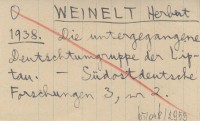 O WEINELT Herbert
1938. Die untergegangene
Deutschtumgruppe der Lip-
tau. – Südostdeutsche
Forschungen 3, nr 2.